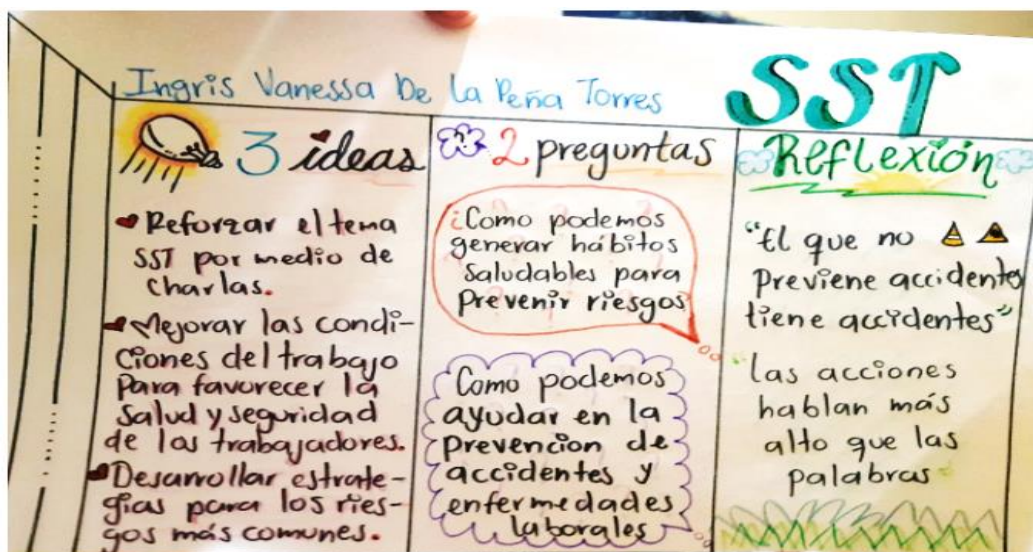 Ingris Vanessa De La Peña Torres
SST
3 ideas
Reforzar el tema
SST por medio de
charlas.
Mejorar las condi-
ciones del trabajo
para favorecer la
salud y seguridad
de los trabajadores.
Desarrollar estrate-
gias para los ries-
gos más comunes.
2 preguntas
¿Como podemos
generar hábitos
saludables para
prevenir riesgos
Como podemos
ayudar en la
prevencion de
accidentes y
enfermedades
laborales
Reflexión
"El que no
previene accidentes
tiene accidentes"
"las acciones
hablan más
alto que las
palabras"